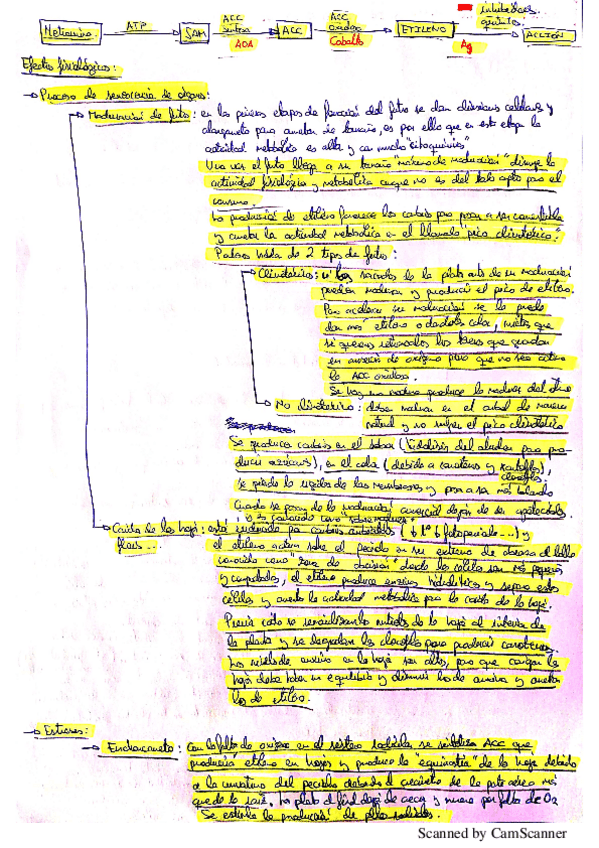 inhibidores
químicos
Metionina ATP SAM ACC sintasa ACC ACC oxidasa ETILENO ACCIÓN
AOA Cobalto Ag
Efectos fisiológicos:
Proceso de senescencia de órganos:
Maduración de fruto: en las primeras etapas de formación del fruto se dan divisiones celulares y
alargamiento para aumentar de tamaño, es por ello que en esta etapa la
actividad metabólica es alta y con mucho "citoquininas"
Una vez el fruto llega a su tamaño "máximo de maduración" disminuye la
actividad fisiológica y metabólica aunque no es del todo apto para el
consumo.
La producción de etileno favorece los cambios para pasar a ser comestible
y aumenta la actividad metabólica en el llamado "pico climatérico".
Podemos hablar de 2 tipos de frutos:
Climatéricos: si han sacado de la planta antes de su maduración
pueden madurar y producir el pico de etileno.
Para acelerar su maduración se le puede
dar más etileno o darles calor, mientras que
si queremos retrasarlos los tienes que guardar
en ausencia de oxígeno para que no se active
la ACC oxidasa.
No climatéricos: deben madurar en el árbol de manera
natural y no sufren el pico climatérico
Se producen cambios en el sabor (hidrólisis del almidón para pro-
ducir azúcares), en el color (debido a carotenos y xantofilas),
clorofila
se pierde la rigidez de las membranas y pasa a ser más blando
Cuando se pasa de la maduración comercial dejan de ser
Caída de las hojas: está inducida por cambios ambientales (↓ Tª ↓ fotoperiodo...) y
flores...
el etileno actúa sobre el peciolo en su extremo
conocido como "zona de abscisión" donde las células son más pequeñas
y compactadas, el etileno produce enzimas hidrolíticas y separa estas
células y aumenta la actividad metabólica para la caída de la hoja.
Previa caída se removilizan los nutrientes de la hoja al sistema de
la planta y se degradan las clorofilas para producir carotenos.
Los niveles de auxina en la hoja son altos, para que caigan la
hoja debe haber un equilibrio y disminuir los de auxina y aumentar
los de etileno.
Estreses:
Encharcamiento: Con la falta de oxígeno en el sistema radicular se sintetiza ACC que
producirá etileno en hojas y produce la "epinastia" de la hoja debido
a la curvatura del peciolo debido al crecimiento de la parte aérea más
que de la raíz. La planta al final deja de crecer y muere por falta de O2
Se estimula la producción de pelos radicales.
Scanned by CamScanner